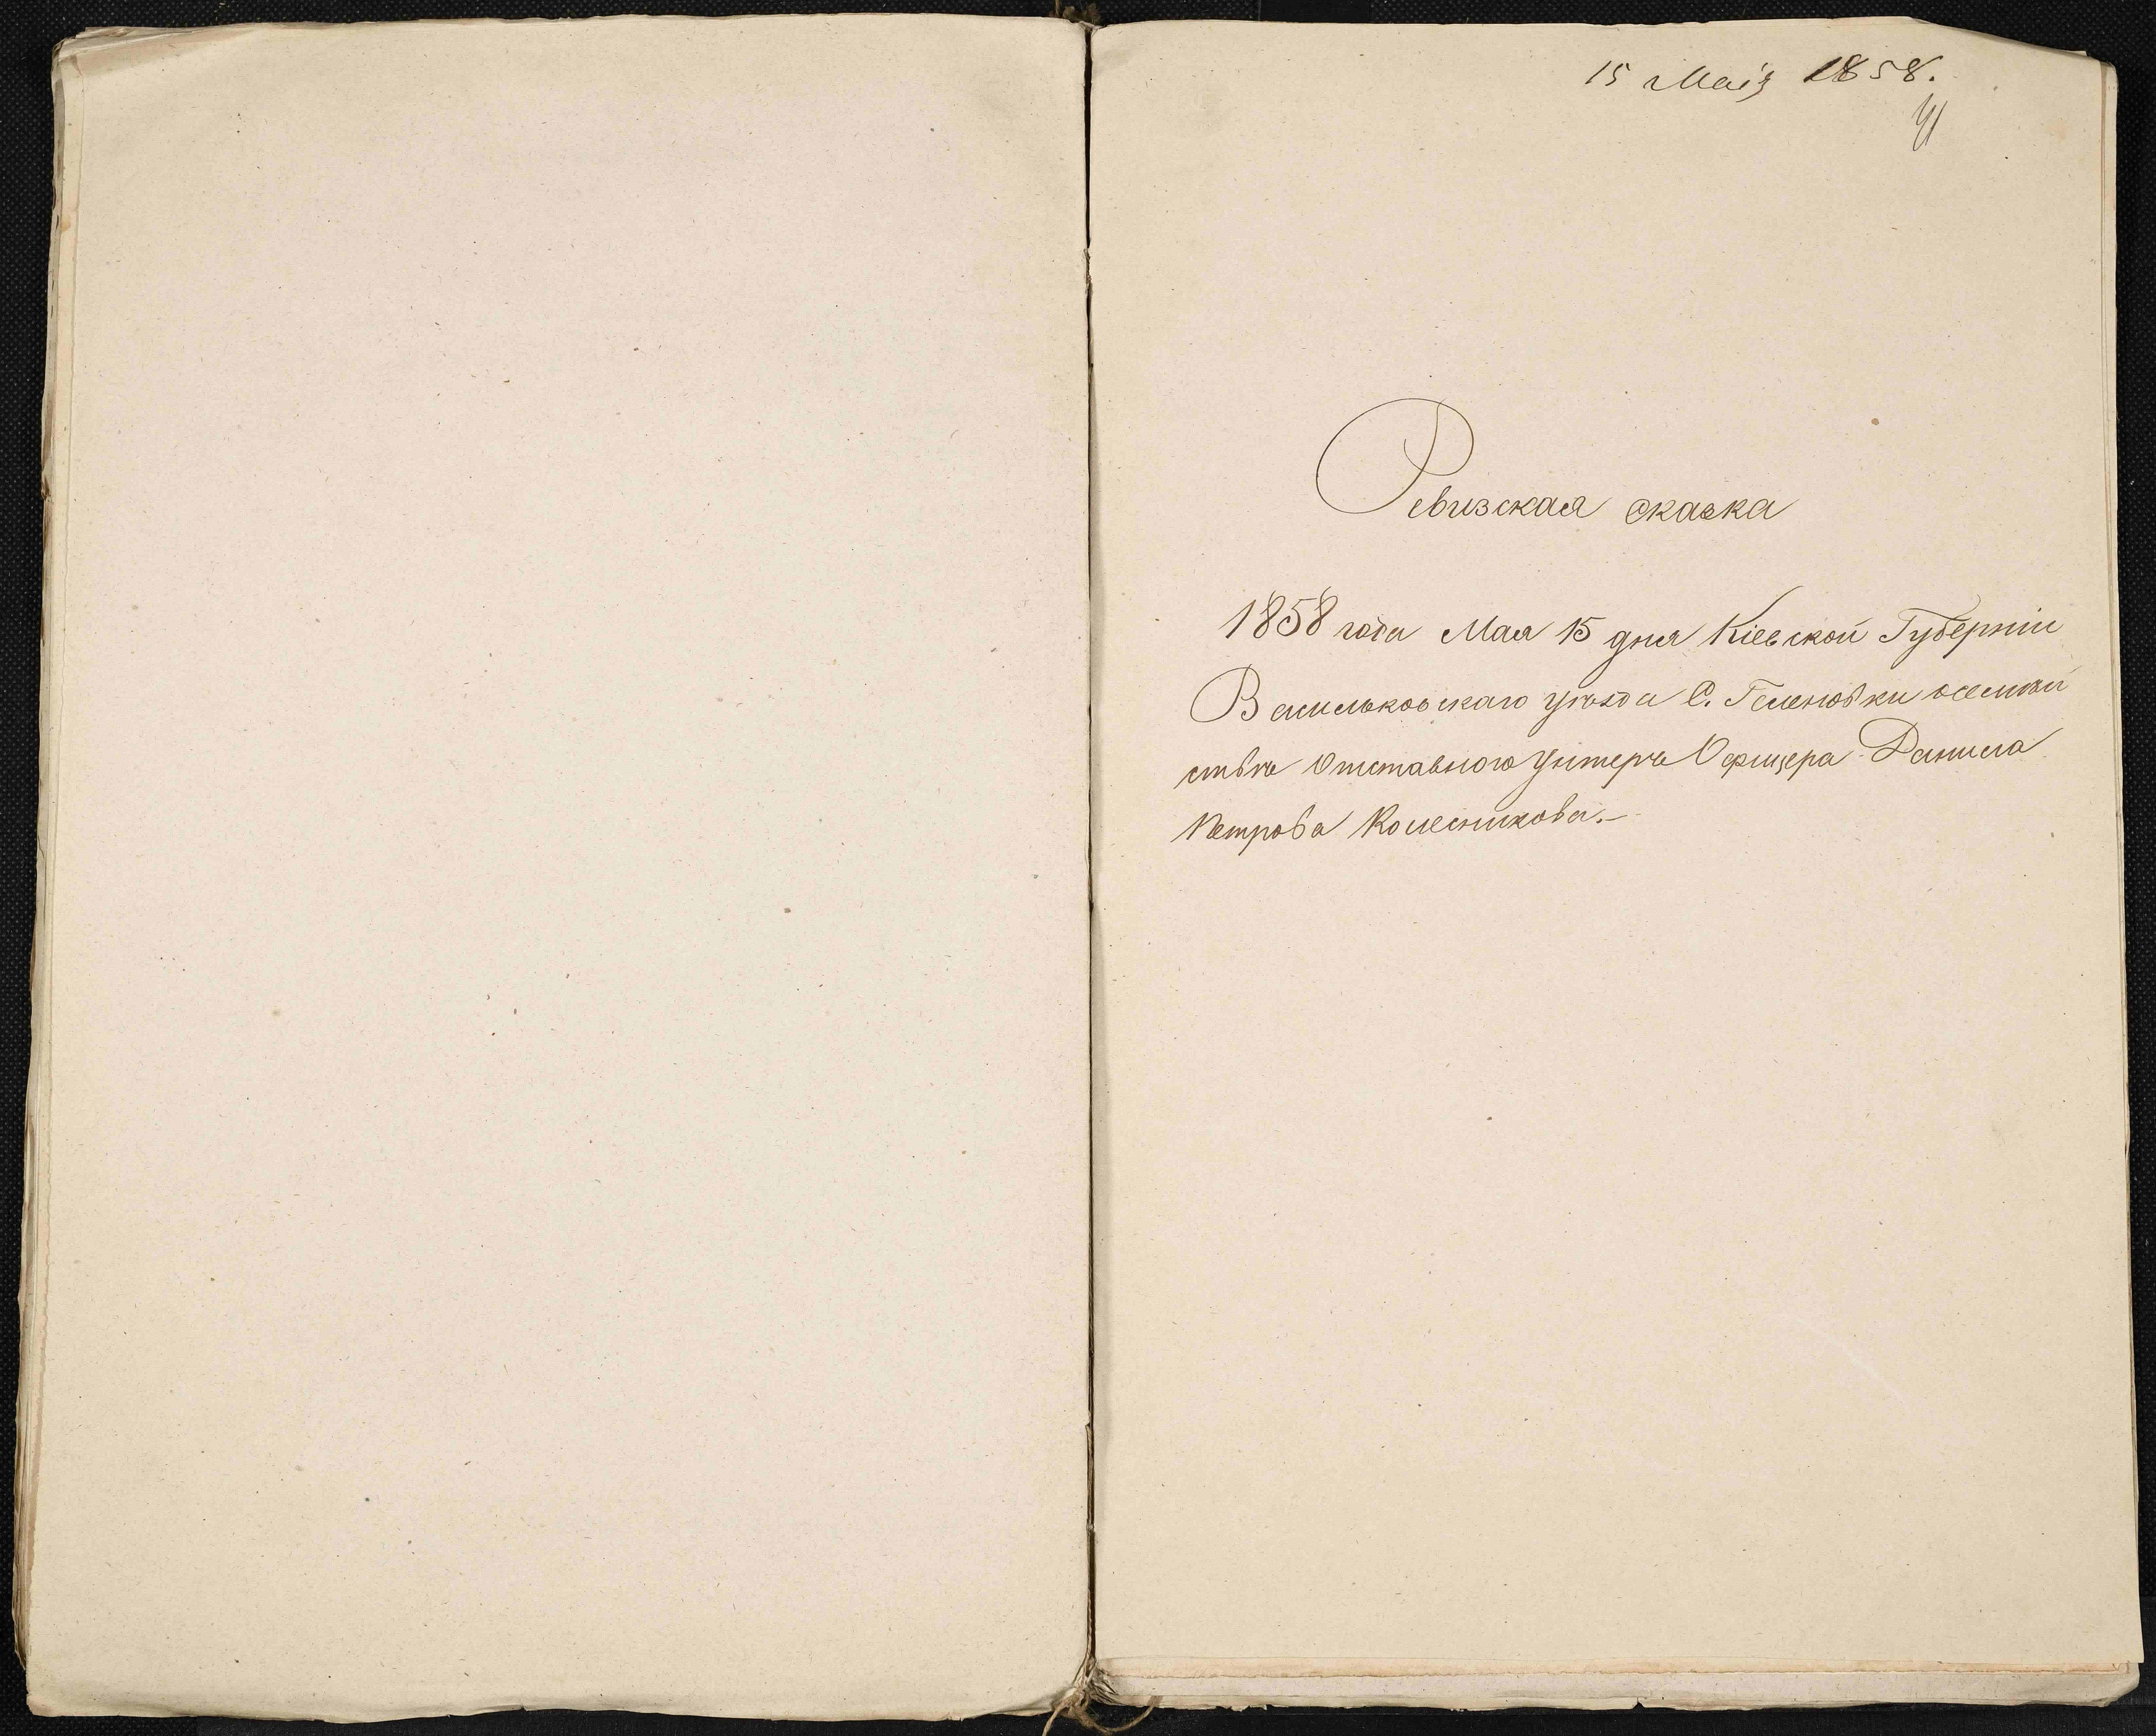 15 Маія 1858.
41
Ревизская сказка
1858 года Мая 15 дня Кіевской Губерніи
Васильковскаго уѣзда С. Геленовки о семей
ствѣ Отставного Унтеръ Офицера Данила
Петрова Колесникова.–